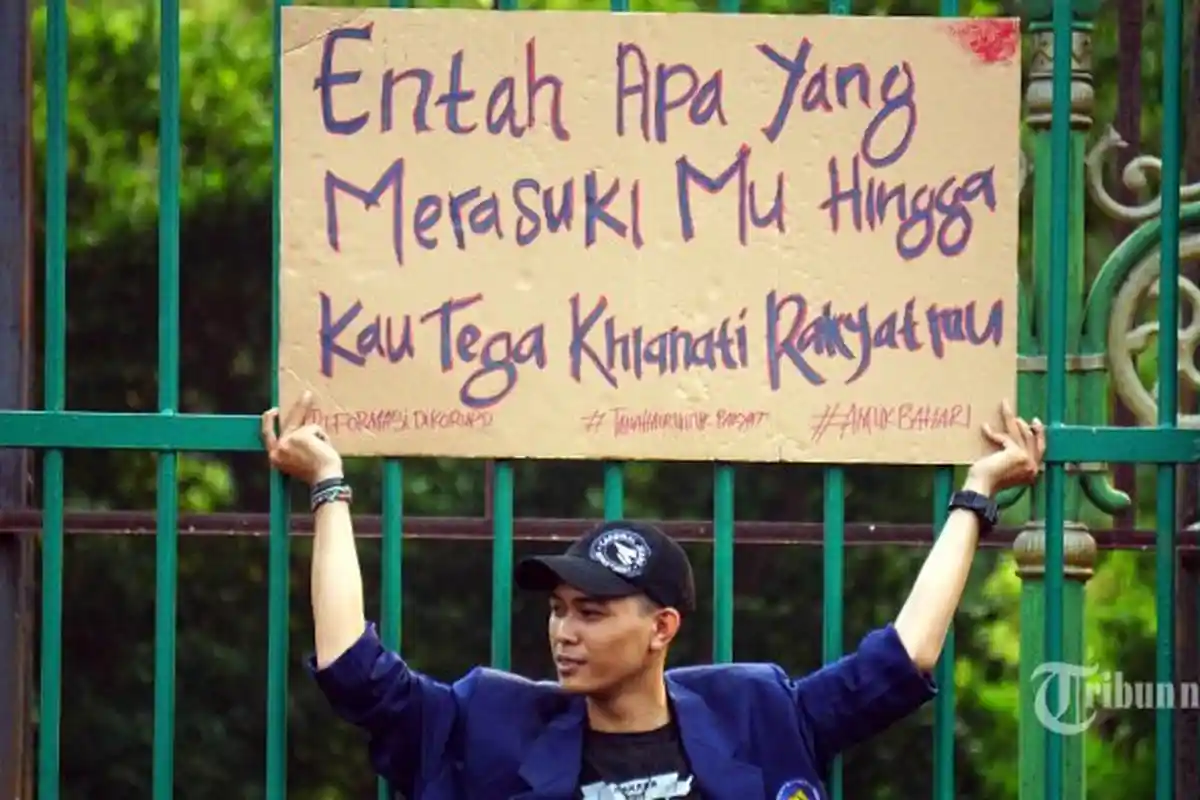 Entah Apa Yang
Merasuki Mu Hingga
Kau Tega Khianati Rakyatmu
#REFORMASI DIKORUPSI
#AMUK BAHARI
Tribunn